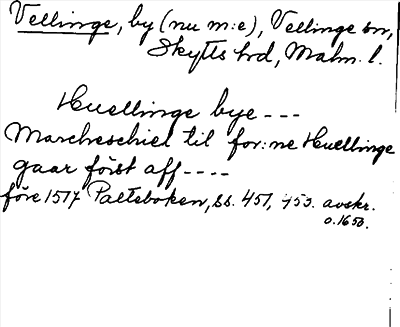 Vellinge, by (nu m:e), Vellinge sn,
Skytts hrd, Malm. l.
Huellinge bye ---
Marcheschiel til for:ne Huellinge
gaar först aff ----
före 1517 Palteboken, ss. 451, 453. avskr.
o. 1650.